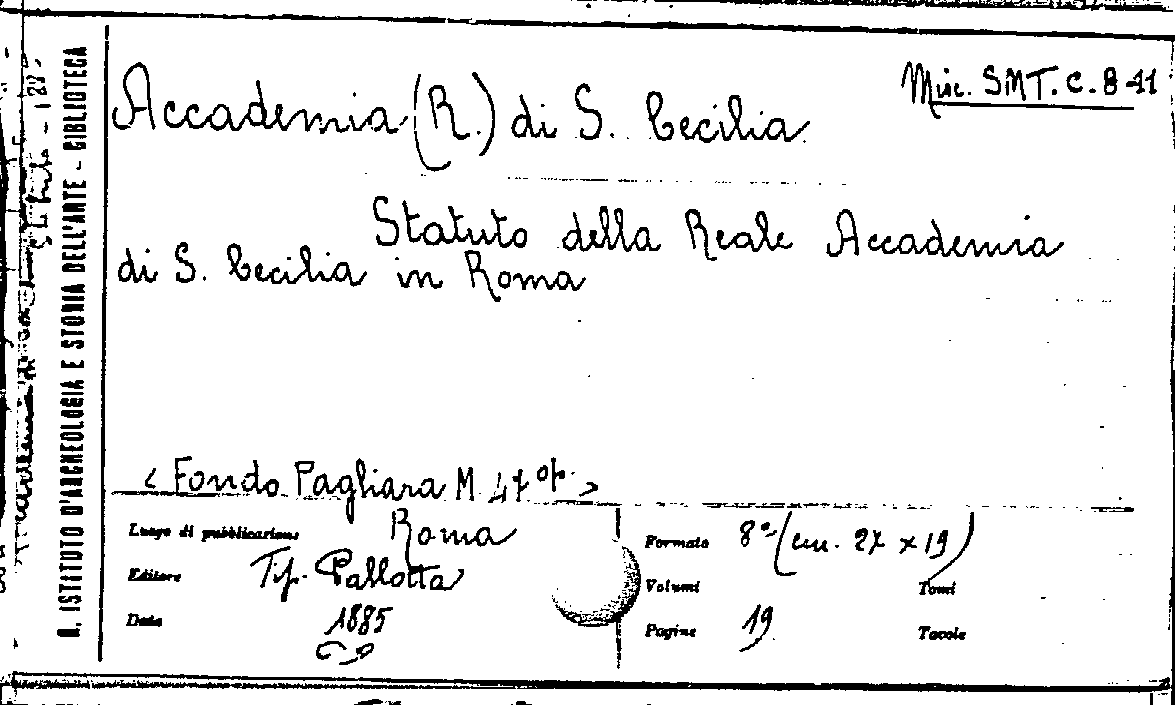 Misc. SMT. C. 8-11
Accademia (R.) di S. Cecilia
Statuto della Reale Accademia
di S. Cecilia in Roma
< Fondo Pagliara M 47 op. >
Luogo di pubblicazione Roma
Editore Tip. Pallotta
Data 1885
Formato 8° (cm. 27 x 19)
Volumi Tomi
Pagine 19 Tavole
R. ISTITUTO D'ARCHEOLOGIA E STORIA DELL'ARTE - BIBLIOTECA